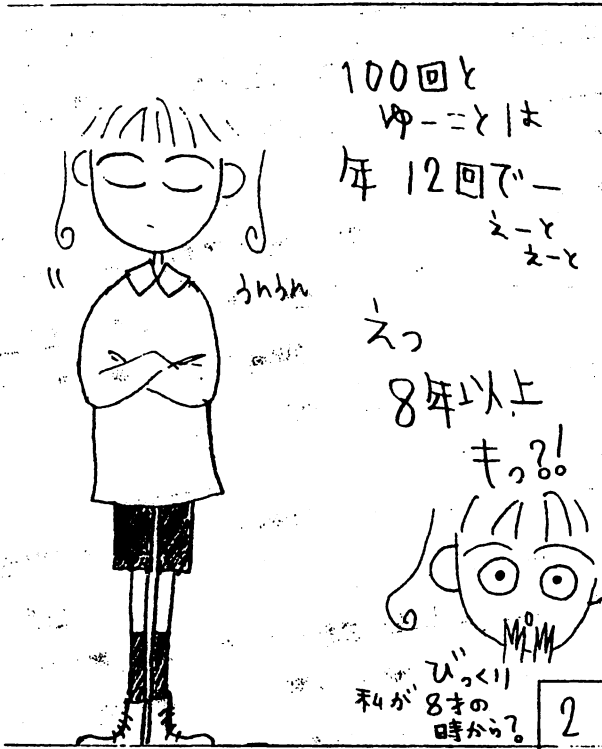 100回と
ゆーことは
年12回でー
えーと
えーと
うんうん
えっ
8年以上
キっ?!
びっくり
私が8才の
時から?
2